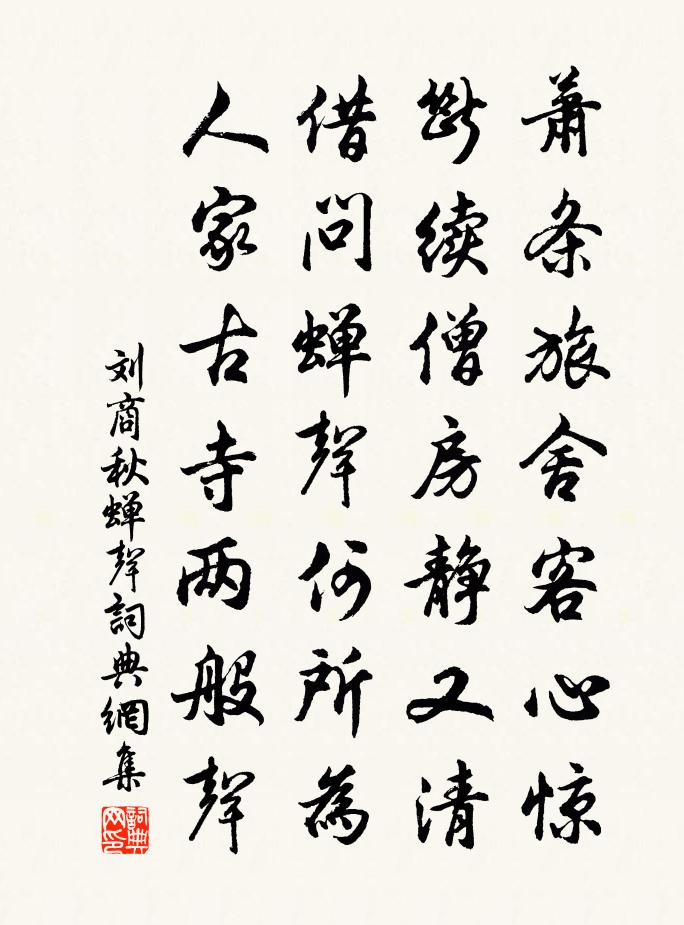 蕭条旅舍客心惊
斷续僧房静又清
借问蝉聲何所為
人家古寺两般聲
刘商秋蝉聲詞典網集
詞典
网印